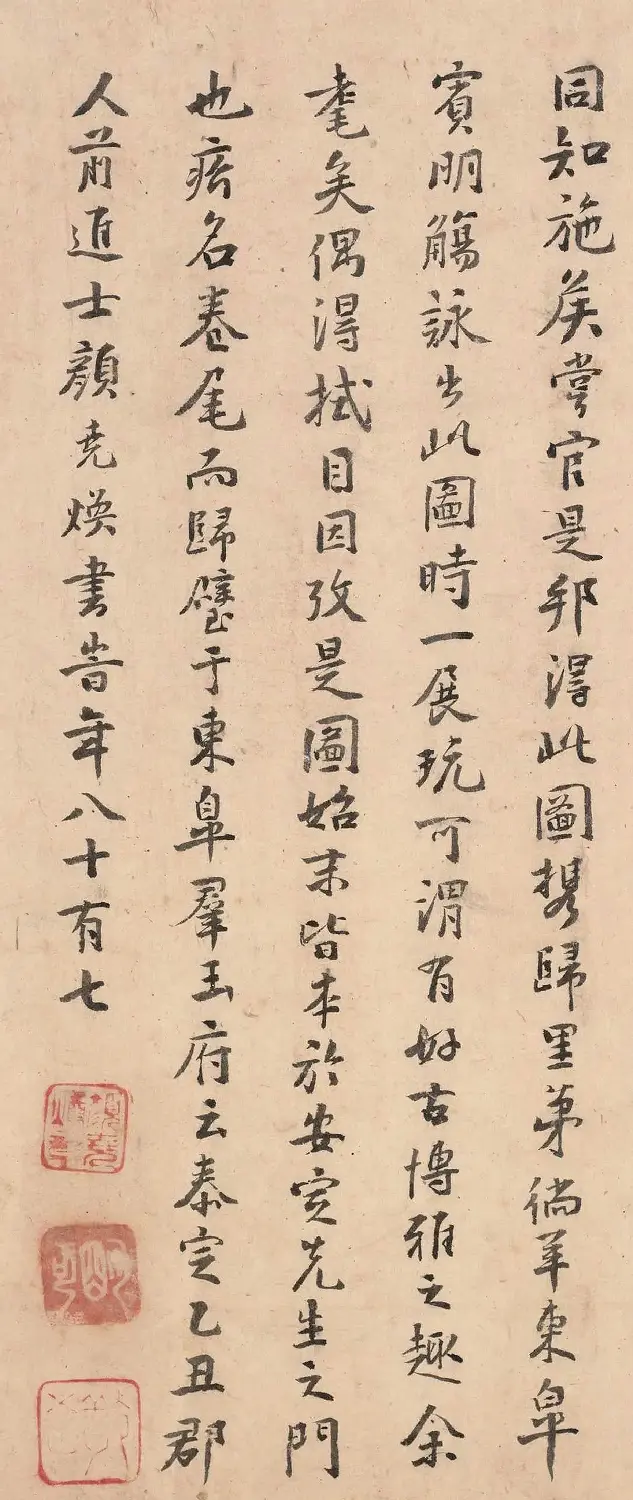 同知施矦嘗官是邦得此圖携歸里苐徜羊東皐
賓朋觴詠出此圖時一展玩可謂有好古博雅之趣余
耄矣偶得拭目因攷是圖始末皆本於安定先生之門
也瘖名卷尾而歸璧于東皐羣玉府云泰定乙丑郡
人前進士顏堯煥書旹年八十有七